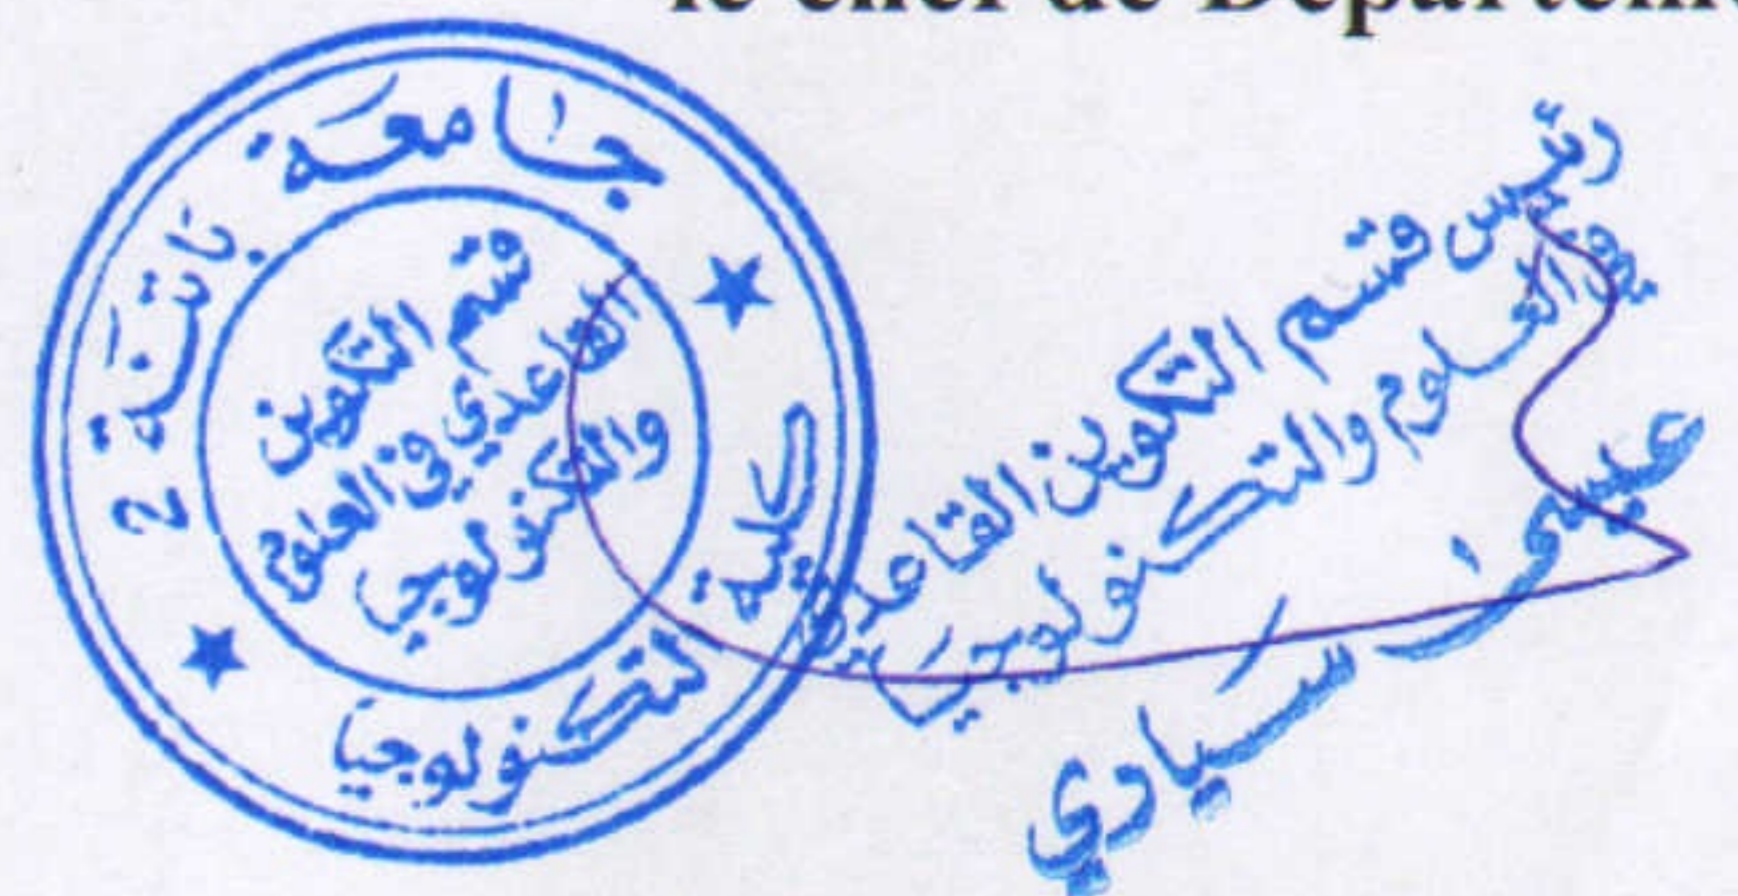 le chef de Départeme
جامعة باتنة 2
كلية التكنولوجيا
قسم التكوين
القاعدي في العلوم
والتكنولوجيا
رئيس قسم التكوين القاعدي
في العلوم والتكنولوجيا
عيسى سيادي